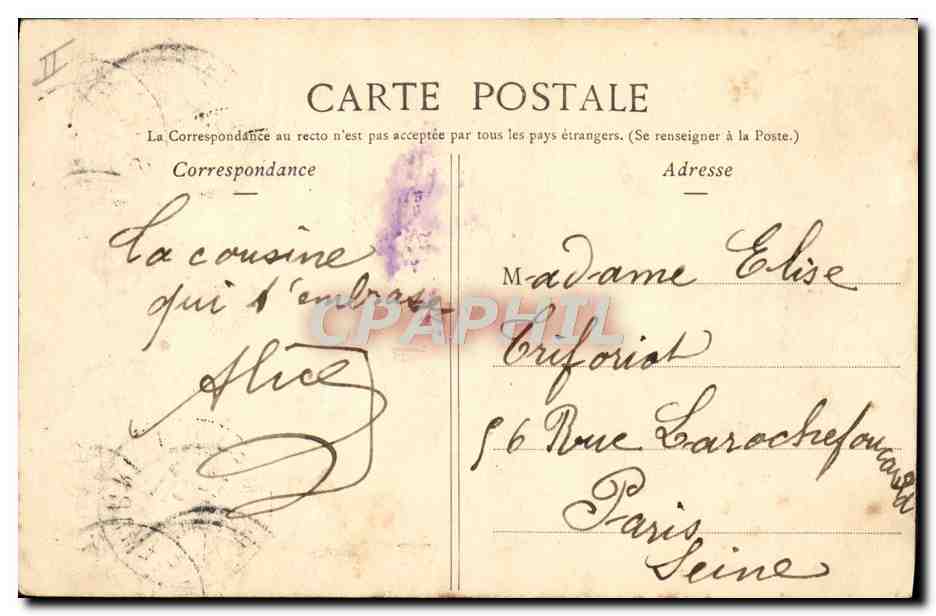 II
CARTE POSTALE
La Correspondance au recto n'est pas acceptée par tous les pays étrangers. (Se renseigner à la Poste.)
Correspondance
la cousine
qui t'embrasse
Alice
Adresse
Madame Elise
Triforiot
56 Rue Larochefoucauld
Paris
Seine
CPAPHIL